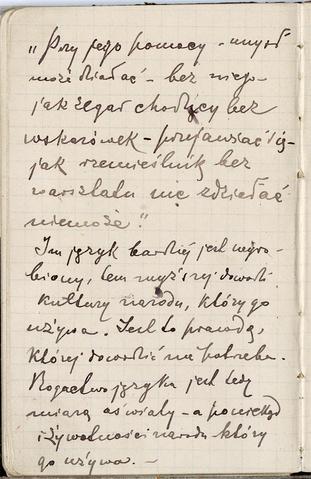 „Przy jego pomocy - umysł
może działać - bez niego
jak zegar chodzący bez
wskazówek - przejawiać się
jak rzemieślnik bez
warsztatu nic zdziałać
niemoże."
Im język bardziej jest wyro-
biony, tem wyższej dowodzi
kultury narodu, który go
używa. Jest to prawdą,
której dowodzić nie potrzeba.
Bogactwo języka jest tedy
miarą oświaty - a poniekąd
i żywotności narodu który
go używa. -